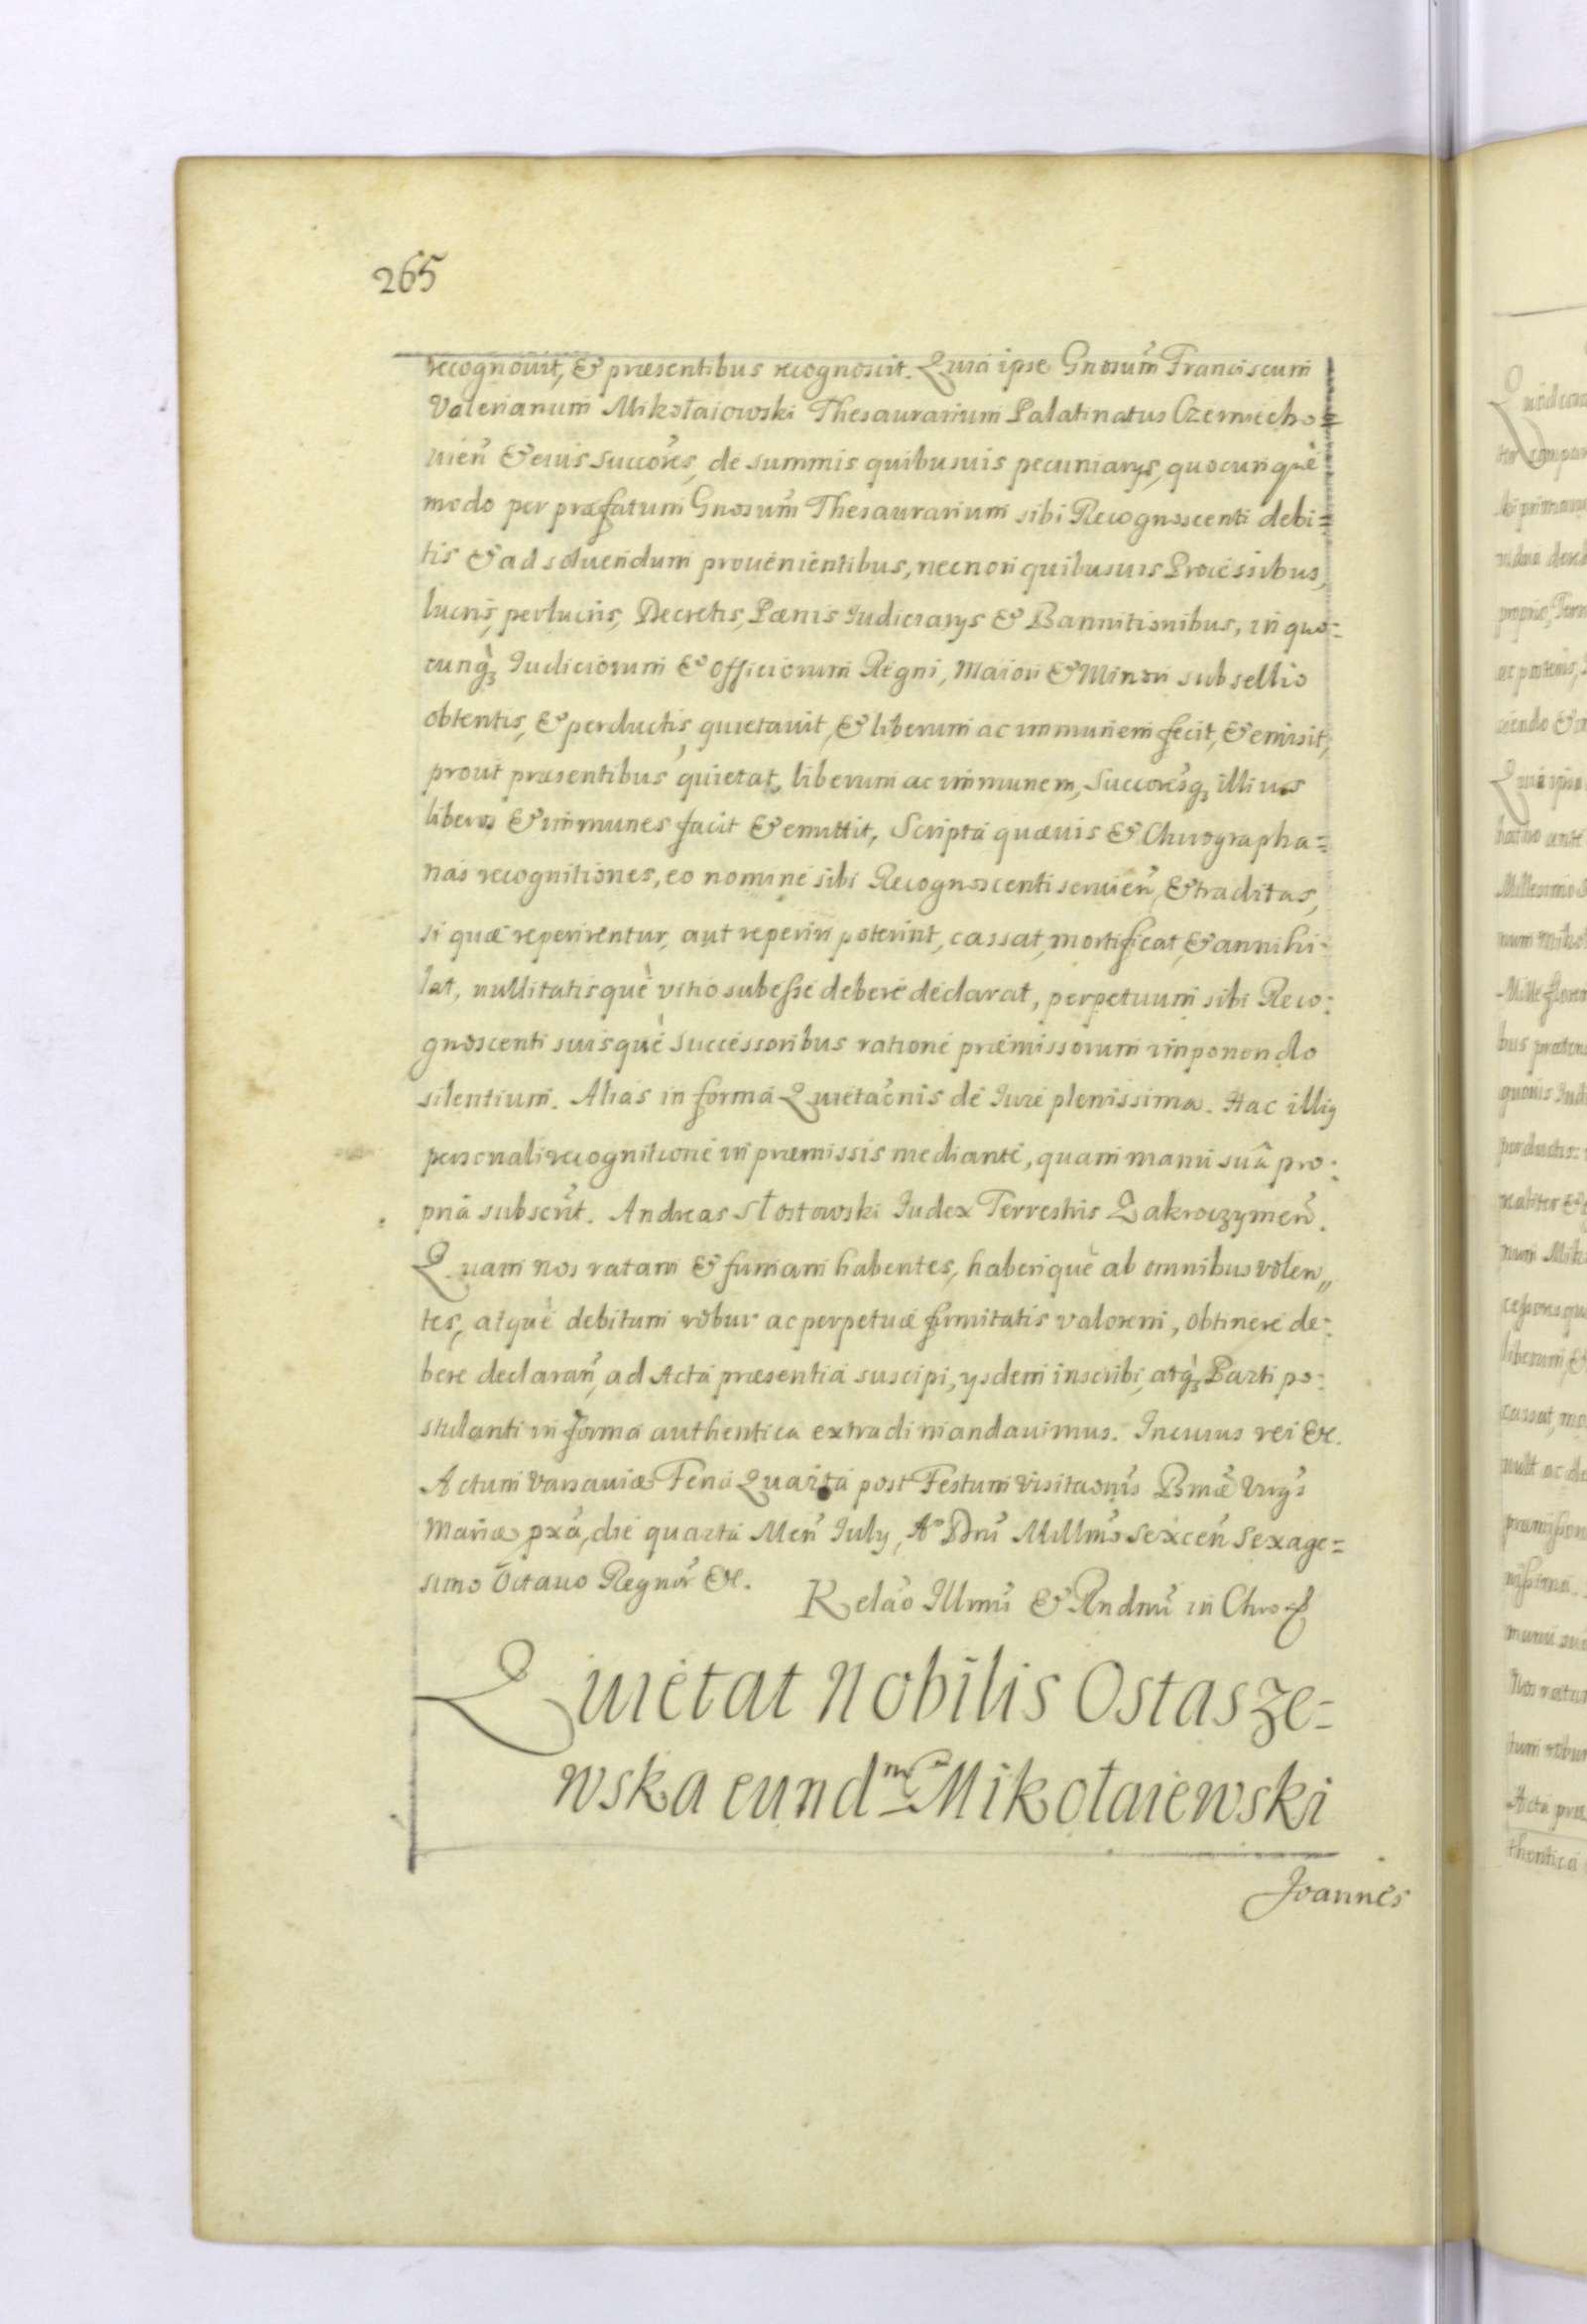 265
recognouit, & præsentibus recognoscit. Quia ipse Gnosum̃ Franciscum
Valerianum Mikołaiowski Thesaurarium Palatinatus Czerniecho=
uien̄ & eius succores, de summis quibusuis pecuniarys, quocunquè
modo per præfatum Gnosum̃ Thesaurarium sibi Recognoscenti debi=
tis & ad soluendum prouenientibus, necnon quibusuis Processibus,
lucris, perlucris, Decretis, Pœnis Iudiciarys & Bannitionibus, in quo=
cunq; Iudiciorum & officiorum Regni, Maiori & Minori subsellio
obtentis, & perductis, quietauit, & liberum ac immunem fecit, & emisit,
prout præsentibus quietat, liberum ac immunem, Succoresq; illius
liberos & immunes facit & emittit, Scripta quæuis & Chirographa=
nas recognitiones, eo nomine sibi Recognoscenti seruien̄, & traditas,
si quæ reperirentur, aut reperiri poterint, cassat, mortificat, & annihi=
lat, nullitatisquè vitio subesse debere declarat, perpetuum sibi Reco=
gnoscenti suisquè successoribus ratione præmissorum imponendo
silentium. Alias in forma Quietaõnis de Iure plenissima. Hac illig
personali recognitione in præmissis mediante, quam manu suâ pro=
priâ subscrt̃. Andreas Słostowski Iudex Terrestris Zakroczymen̄.
Quam nos ratam & firmam habentes, haberiquè ab omnibus volen„
tes, atquè debitum robur ac perpetuæ firmitatis valorem, obtinere de=
bere declaran̄, ad Acta præsentia suscipi, ysdem inscribi, atq; Parti po=
stulanti in forma authentica extradi mandauimus. In cuius rei &c.
Actum Varsauiæ Feria Quarta post Festum Visitaõnis Bmæ Virgs
Mariæ pxa, die quarta Men̄ July, Aº Dni Millmo Sexcen̄ Sexage=
simo Octauo Regnor̃ &c.
Relão Illmi & Rndmi in Chro ꝓ
Quietat Nobilis Ostasze=
wska eundᵐ Mikołaiewski
Joannes